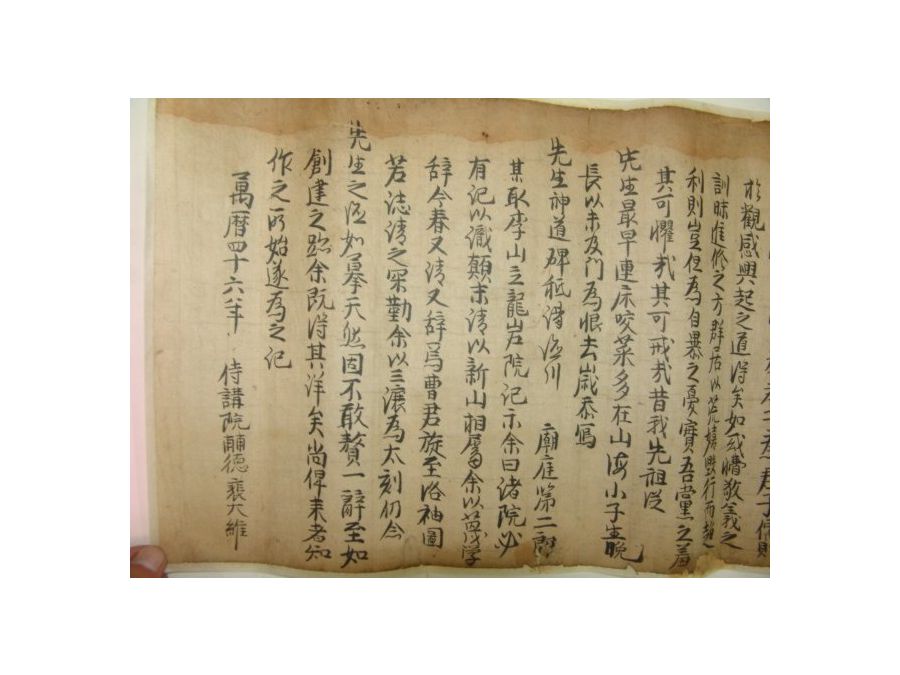 於觀感興起之道得矣如或懵敬義之
訓昧進修之方群居以荒嬉行而
利則豈但為自暴之憂實吾黨之羞
其可懼哉其可戒哉昔我先祖從
先生最早連床咬菜多在山海小子生晚
長以未及門為恨去歲忝為
先生神道碑祗謁德川 廟庭第二
某取李山立龍岩院記示余曰諸院必
有記以識顛末請以新山相屬余以蔑学
辞今春又請又辞焉曹君旋至洛袖圖
若誌請之罙勤余以三瀼為太刻仍念
先生之德如摹天然因不敢贅一辭至如
創建之跡余既得其詳矣尚俾来者知
作之所始遂為之記
萬曆四十六年 侍講院輔德裵大維